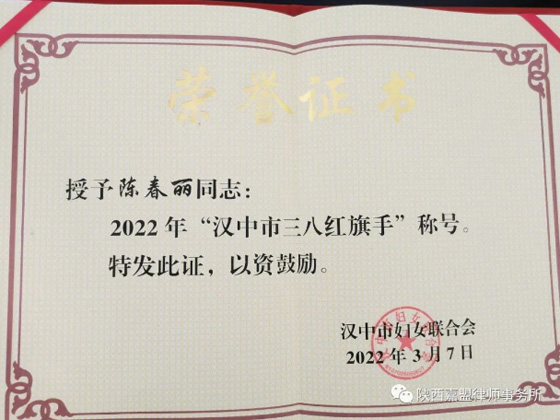 荣誉证书
授予陈春丽同志：
2022年“汉中市三八红旗手”称号。
特发此证，以资鼓励。
汉中市妇女联合会
2022年3月7日
陕西嘉盟律师事务所